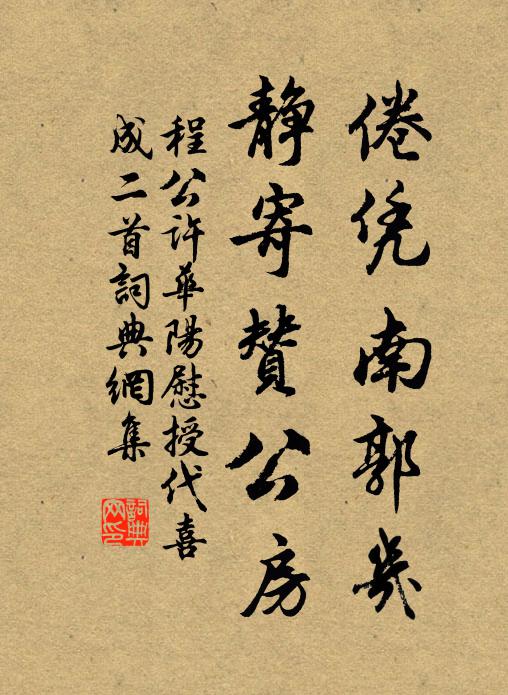 倦凭南郭几
静寄贊公房
程公许華陽慰授代喜
成二首詞典網集
詞典网印